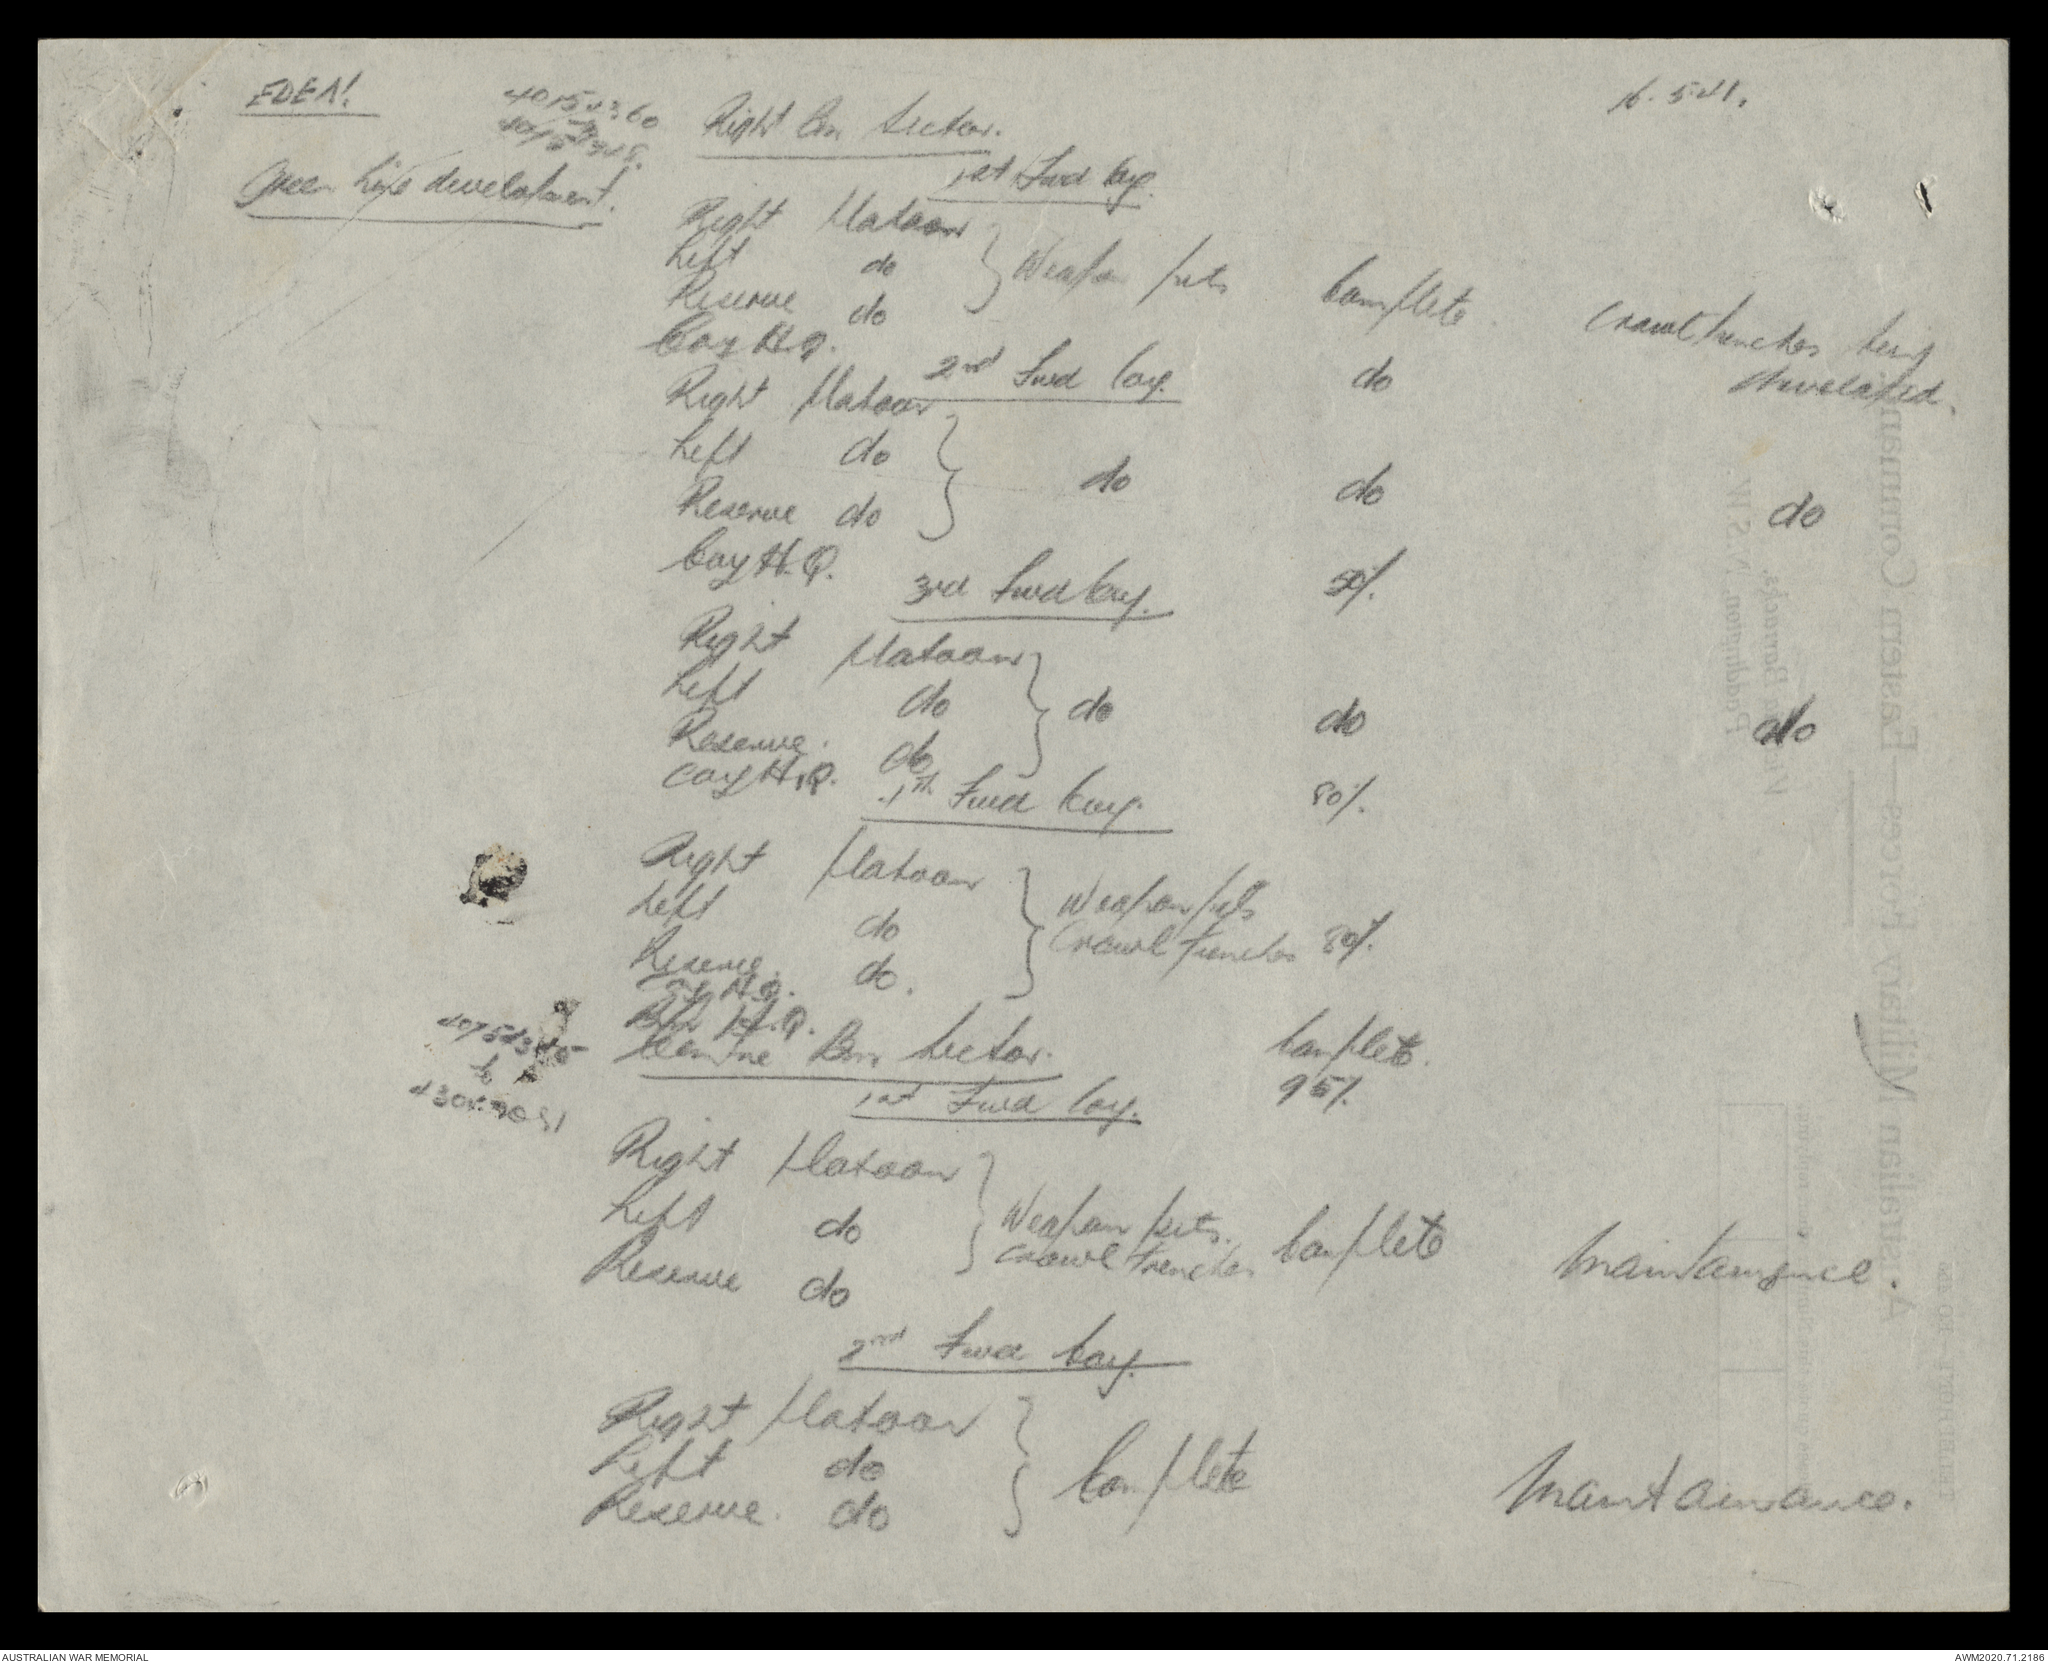 EDEA!
16.5.41.
Right Bn Sector.
Green Line development.
1st Fwd Coy.
Right Platoon
Left do
Reserve do
Weapon pits Complete Crawl trenches being
developed.
Coy H.Q. do
2nd Fwd Coy.
Right Platoon
Left do
Reserve do
do do do
Coy H.Q. 50%.
3rd Fwd Coy.
Right Platoon
Left do
Reserve. do
do do do
Coy H.Q. 80%.
Fwd Coy.
Right Platoon
Left do
Reserve. do.
Weapon pits
Crawl trenches 80%.
Coy H.Q.
Bn H.Q. Complete.
Centre Bn Sector. 95%.
1st Fwd Coy.
Right Platoon
Left do
Reserve do
Weapon pits.
Crawl trenches Complete Maintainance.
2nd Fwd Coy.
Right Platoon
Left do
Reserve. do
Complete Maintainance.
Australian Military Forces—Eastern Command
Victoria Barracks,
Paddington, N.S.W.
AUSTRALIAN WAR MEMORIAL
AWM2020.71.2186